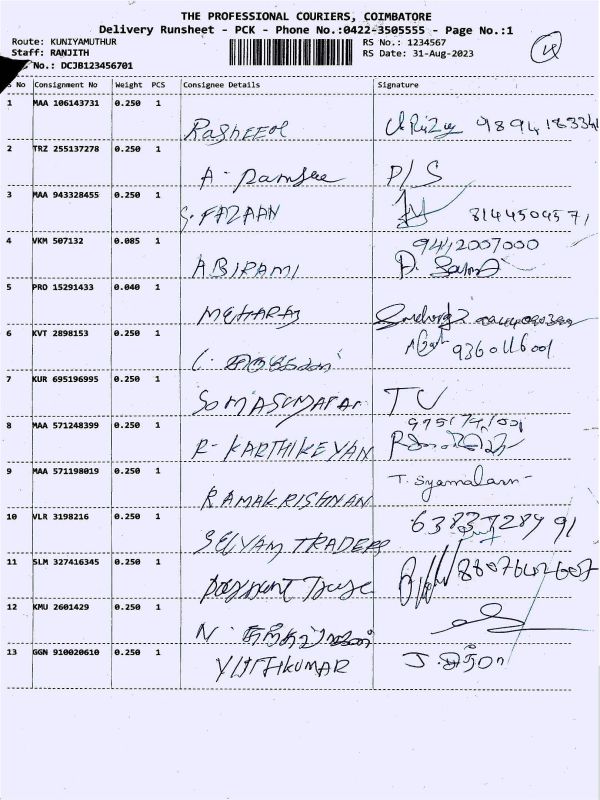 THE PROFESSIONAL COURIERS, COIMBATORE
Delivery Runsheet - PCK - Phone No.:0422-3505555 - Page No.:1
Route: KUNIYAMUTHUR RS No.: 1234567
Staff: RANJITH RS Date: 31-Aug-2023
No.: DCJB123456701
No Consignment No Weight PCS Consignee Details Signature
1 MAA 106143731 0.250 1
Rasheed
2 TRZ 255137278 0.250 1
A. P/S
3 MAA 943328455 0.250 1
S. FAZAAN 8144504571
4 VKM 507132 0.085 1 9412007000
ABIRAMI
5 PRO 15291433 0.040 1
MEHARAJ
6 KVT 2898153 0.250 1
7 KUR 695196995 0.250 1
SOMASUNDARAM TV
8 MAA 571248399 0.250 1
R. KARTHIKEYAN
9 MAA 571198019 0.250 1
RAMAKRISHNAN T. Syamalam
10 VLR 3198216 0.250 1
SELVAM TRADERS
11 SLM 327416345 0.250 1
12 KMU 2601429 0.250 1
N.
13 GGN 910020610 0.250 1
VIJITHKUMAR J.